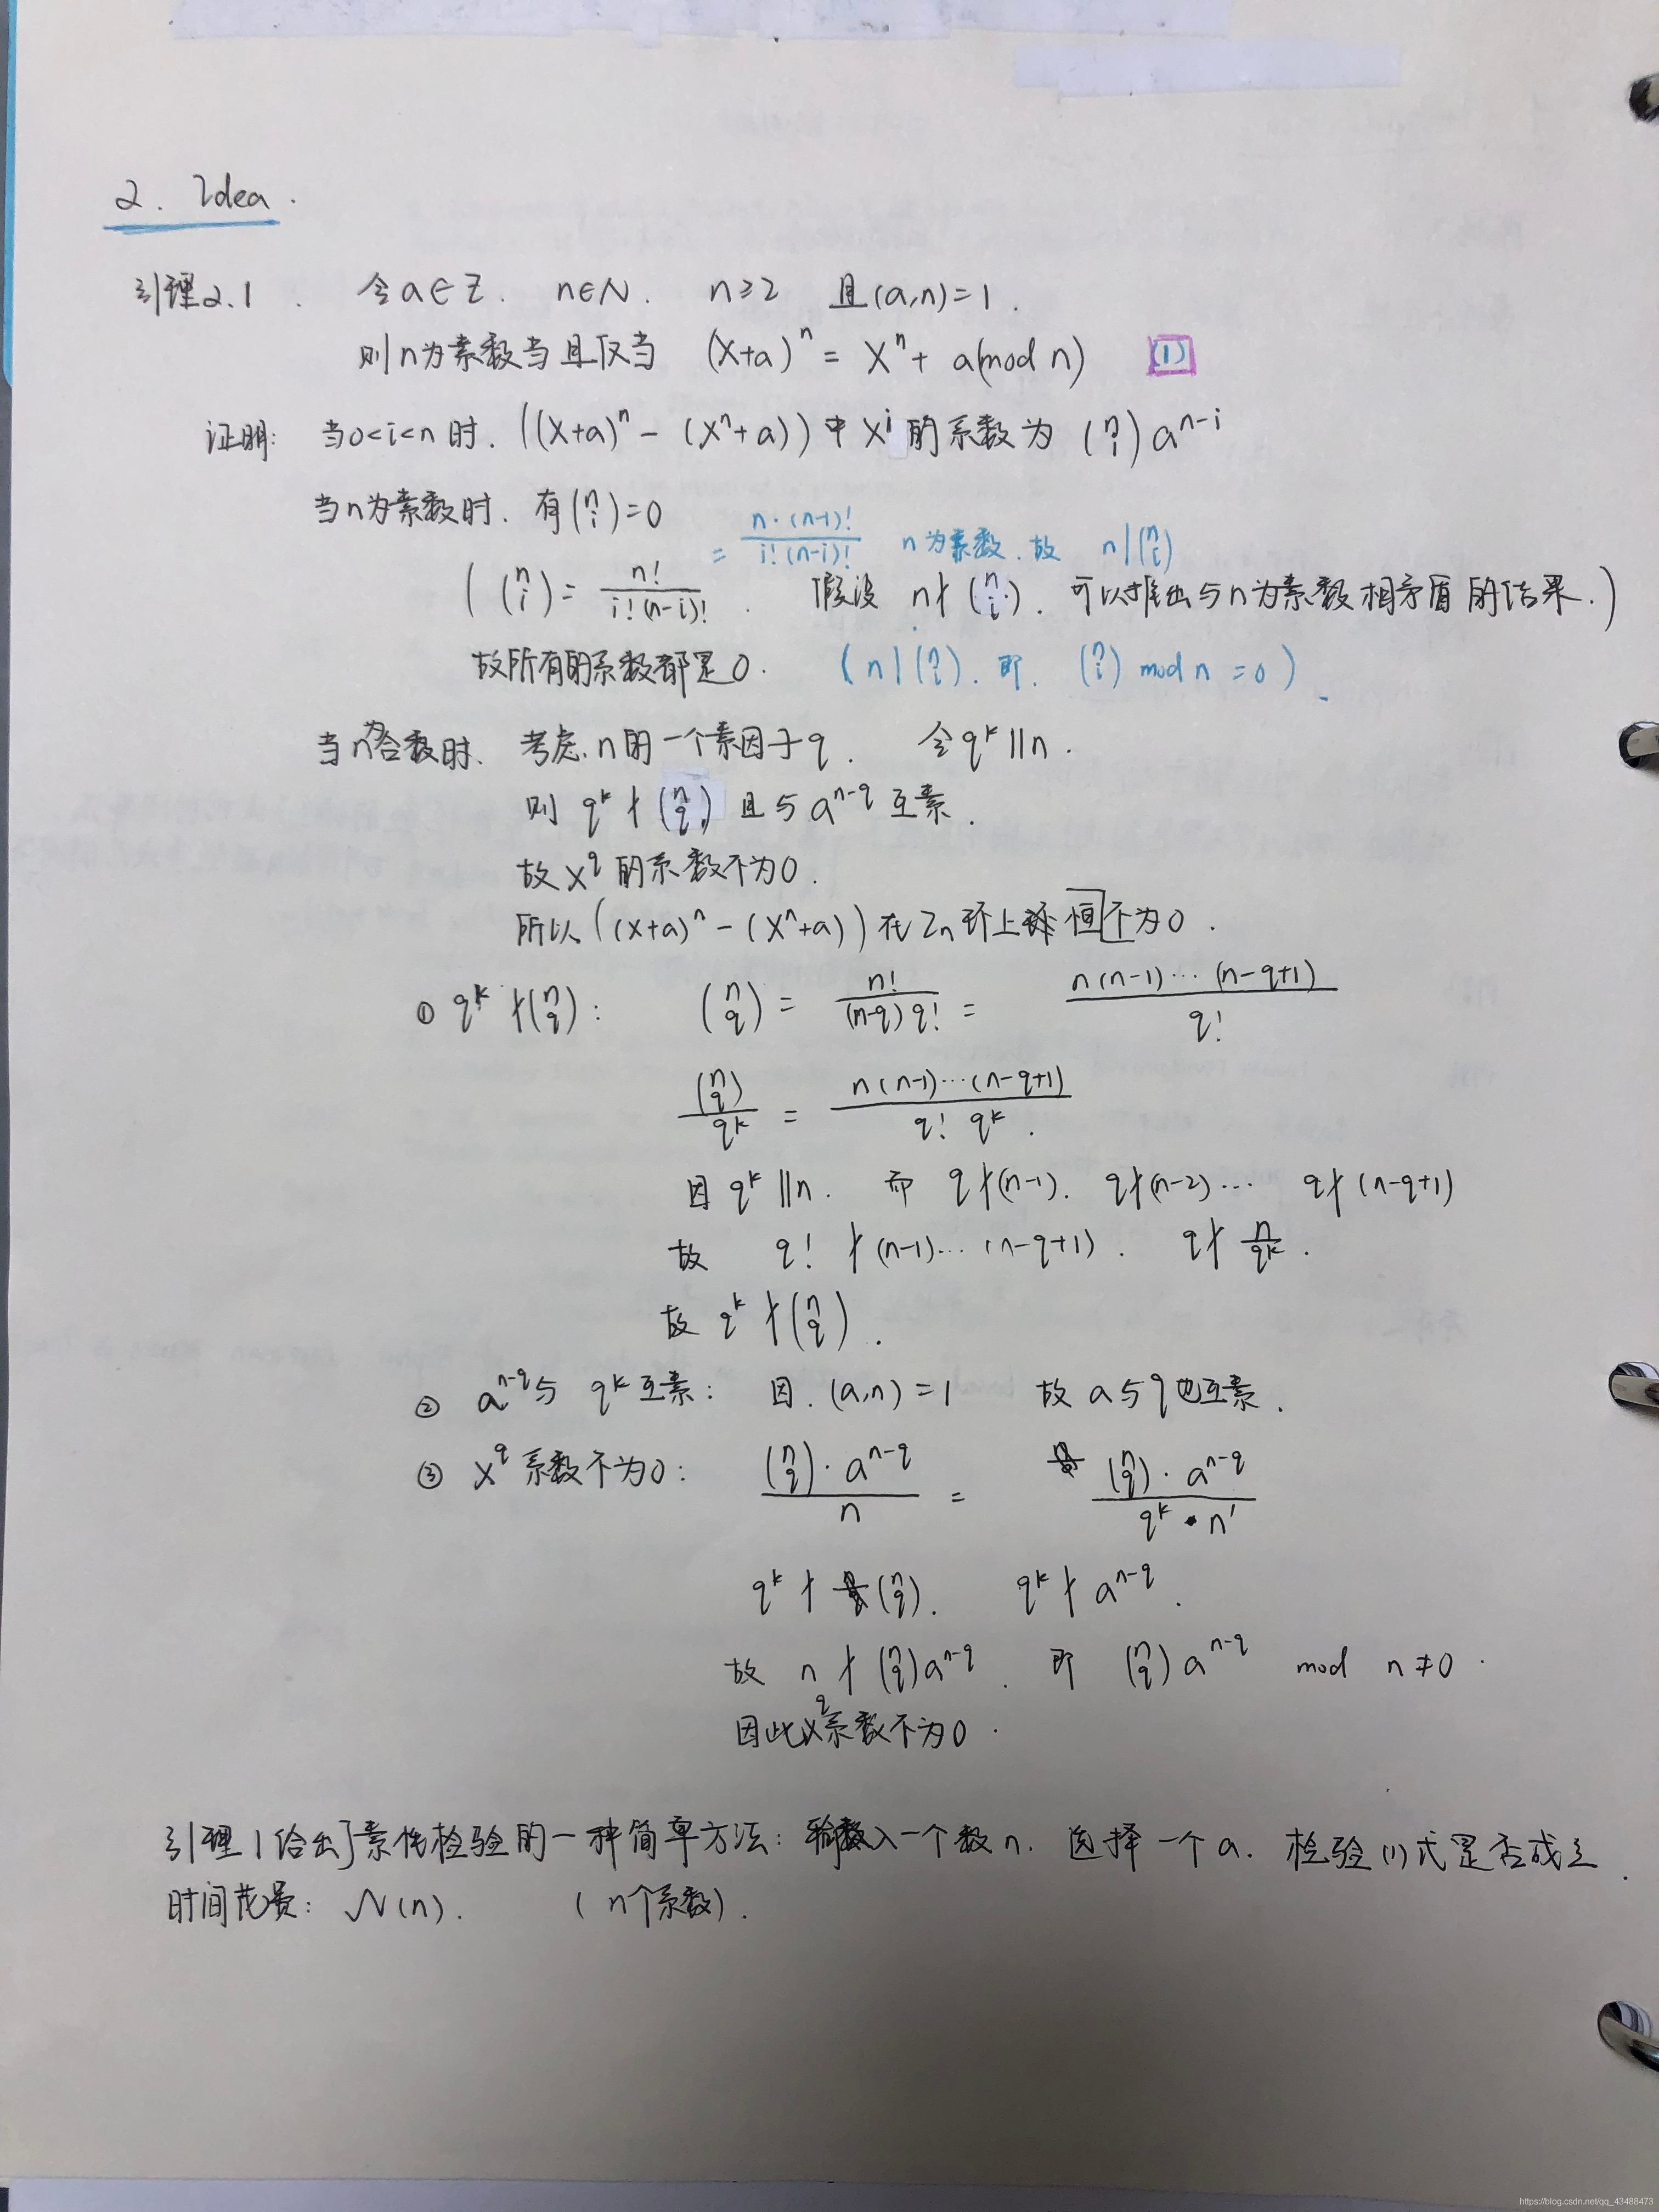 2. Idea.
引理2.1. 令a∈Z. n∈N. n≥2 且(a,n)=1.
则n为素数当且仅当 (X+a)^n = X^n + a(mod n) (1)
证明: 当0<i<n时. ((X+a)^n - (X^n+a))中X^i的系数为 (n i) a^{n-i}
当n为素数时. 有(n i)=0
= n·(n-1)! / i!(n-i)! n为素数.故 n|(n i)
( (n i) = n! / i!(n-i)! . 假设 n∤(n i). 可以推出与n为素数相矛盾的结果.)
故所有的系数都是0. (n|(n i).即. (n i) mod n =0).
当n为合数时. 考虑n的一个素因子q. 令q^k||n.
则 q^k∤(n q) 且与a^{n-q}互素.
故X^q的系数不为0.
所以((X+a)^n - (X^n+a))在Zn环上恒不为0.
① q^k∤(n q): (n q) = n! / (n-q)q! = n(n-1)···(n-q+1) / q!
(n q) / q^k = n(n-1)···(n-q+1) / q! q^k.
因q^k||n. 而 q∤(n-1). q∤(n-2)··· q∤(n-q+1)
故 q!∤(n-1)···(n-q+1). q∤ n/q^k.
故 q^k∤(n q).
② a^{n-q}与q^k互素: 因.(a,n)=1 故a与q也互素.
③ X^q系数不为0: (n q)·a^{n-q} / n = (n q)·a^{n-q} / q^k·n'
q^k∤(n q). q^k∤a^{n-q}.
故 n∤(n q)a^{n-q}. 即 (n q)a^{n-q} mod n≠0.
因此X^q系数不为0.
引理1给出了素性检验的一种简单方法: 输入一个数n. 选择一个a. 检验(1)式是否成立.
时间花费: (n). (n个系数).
https://blog.csdn.net/qq_43488473